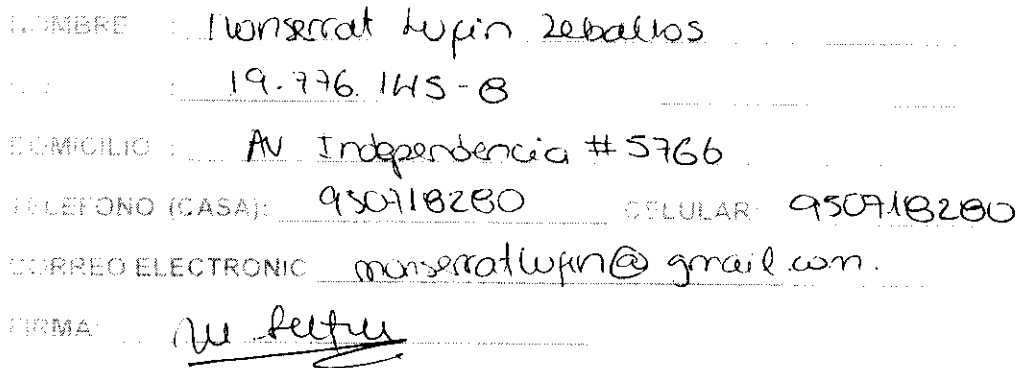 NOMBRE : Monserrat Lufin Zeballos
: 19.776.145-8
DOMICILIO : AV Independencia # 5766
TELEFONO (CASA): 950718280 CELULAR: 950718280
CORREO ELECTRONIC monserratlufin@gmail.com.
FIRMA: